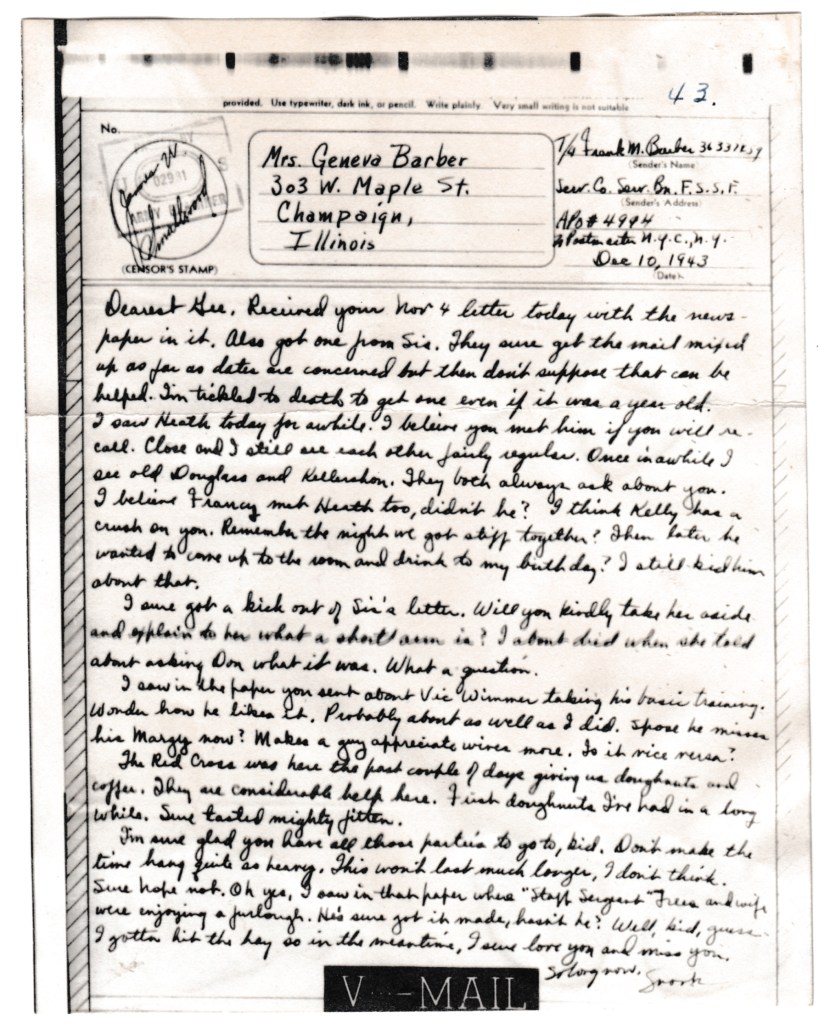 provided. Use typewriter, dark ink, or pencil. Write plainly. Very small writing is not suitable
43.
No.
James W.
(CENSOR'S STAMP)
Mrs. Geneva Barber
303 W. Maple St.
Champaign,
Illinois
T/4 Frank M. Barber
(Sender's Name)
Serv. Co. Serv. Bn. F.S.S.F.
(Sender's Address)
APO # 4994
% Postmaster N.Y.C., N.Y.
Dec 10, 1943
(Date)
Dearest Gee, Received your Nov 4 letter today with the news-
paper in it. Also got one from Sis. They sure get the mail mixed
up as far as dates are concerned but then don't suppose that can be
helped. I'm tickled to death to get one even if it was a year old.
I saw Heath today for awhile. I believe you met him if you will re-
call. Close and I still see each other fairly regular. Once in awhile I
see old Douglass and Kellershon. They both always ask about you.
I believe Francy met Heath too, didn't he? I think Kelly has a
crush on you. Remember the night we got stiff together? Then later he
wanted to come up to the room and drink to my birthday? I still kid him
about that.
I sure got a kick out of Sis's letter. Will you kindly take her aside
and explain to her what a short arm is? I about died when she told
about asking Don what it was. What a question.
I saw in the paper you sent about Vic Wimmer taking his basic training.
Wonder how he likes it. Probably about as well as I did. Spose he misses
his Margy now? Makes a guy appreciate wives more. Is it vice versa?
The Red Cross was here the past couple of days giving us doughnuts and
coffee. They are considerable help here. First doughnuts I've had in a long
while. Sure tasted mighty fitten.
I'm sure glad you have all those parties to go to, kid. Don't make the
time hang quite so heavy. This won't last much longer, I don't think.
Sure hope not. Oh yes, I saw in that paper where "Staff Sergeant" Frees and wife
were enjoying a furlough. He's sure got it made, hasn't he? Well, kid, guess
I gotta hit the hay so in the meantime, I sure love you and miss you.
So long now.
V···—MAIL